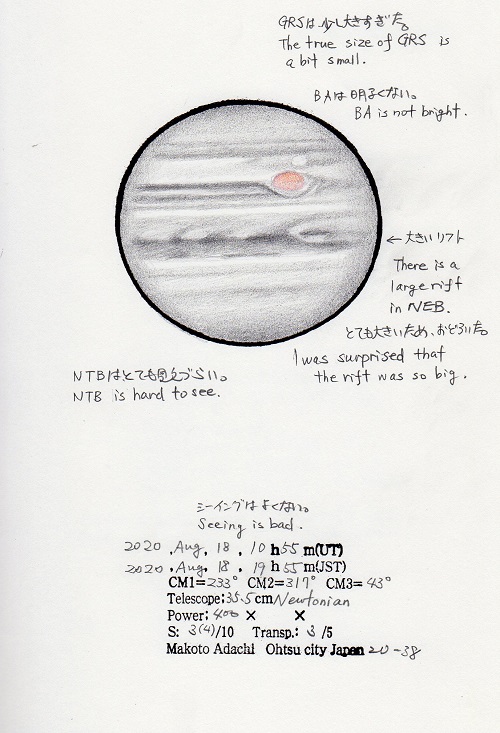 GRSは少し大きすぎた。
The true size of GRS is
a bit small.
BAは明るくない。
BA is not bright.
← 大きいリフト
There is a
large rift
in NEB.
とても大きいため、おどろいた。
I was surprised that
the rift was so big.
NTBはとても見えづらい。
NTB is hard to see.
シーイングはよくない。
Seeing is bad.
2020 , Aug. 18 , 10 h 55 m(UT)
2020 , Aug. 18 , 19 h 55 m(JST)
CM1= 233° CM2= 317° CM3= 43°
Telescope: 35.5 cm Newtonian
Power: 400 × ×
S: 3(4)/10 Transp.: 3 /5
Makoto Adachi Ohtsu city Japan 20-38